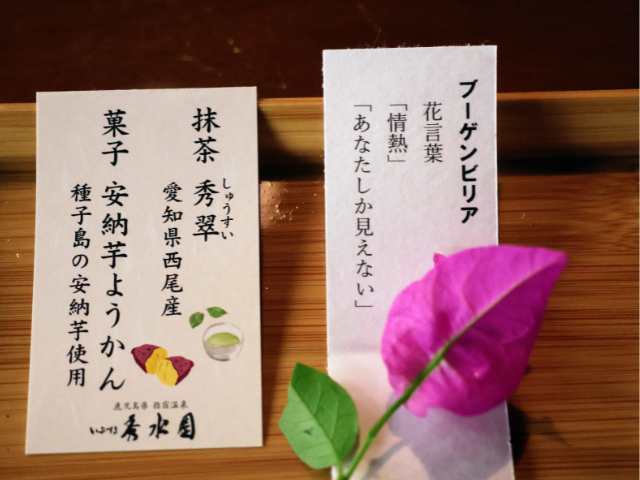 抹茶 秀翠
しゅうすい
愛知県西尾産
菓子 安納芋ようかん
種子島の安納芋使用
鹿児島県 指宿温泉
いぶすき 秀水園
ブーゲンビリア
花言葉
「情熱」
「あなたしか見えない」